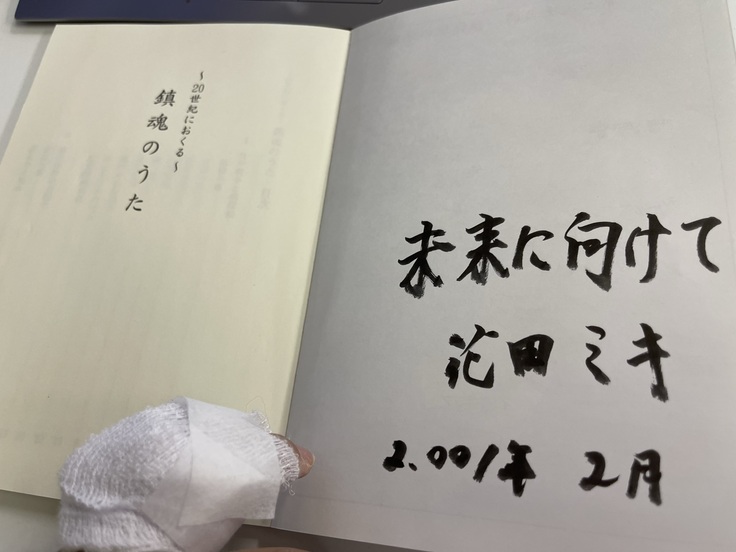 ～20世紀におくる～
鎮魂のうた
未来に向けて
花田ミキ
2.001年 2月